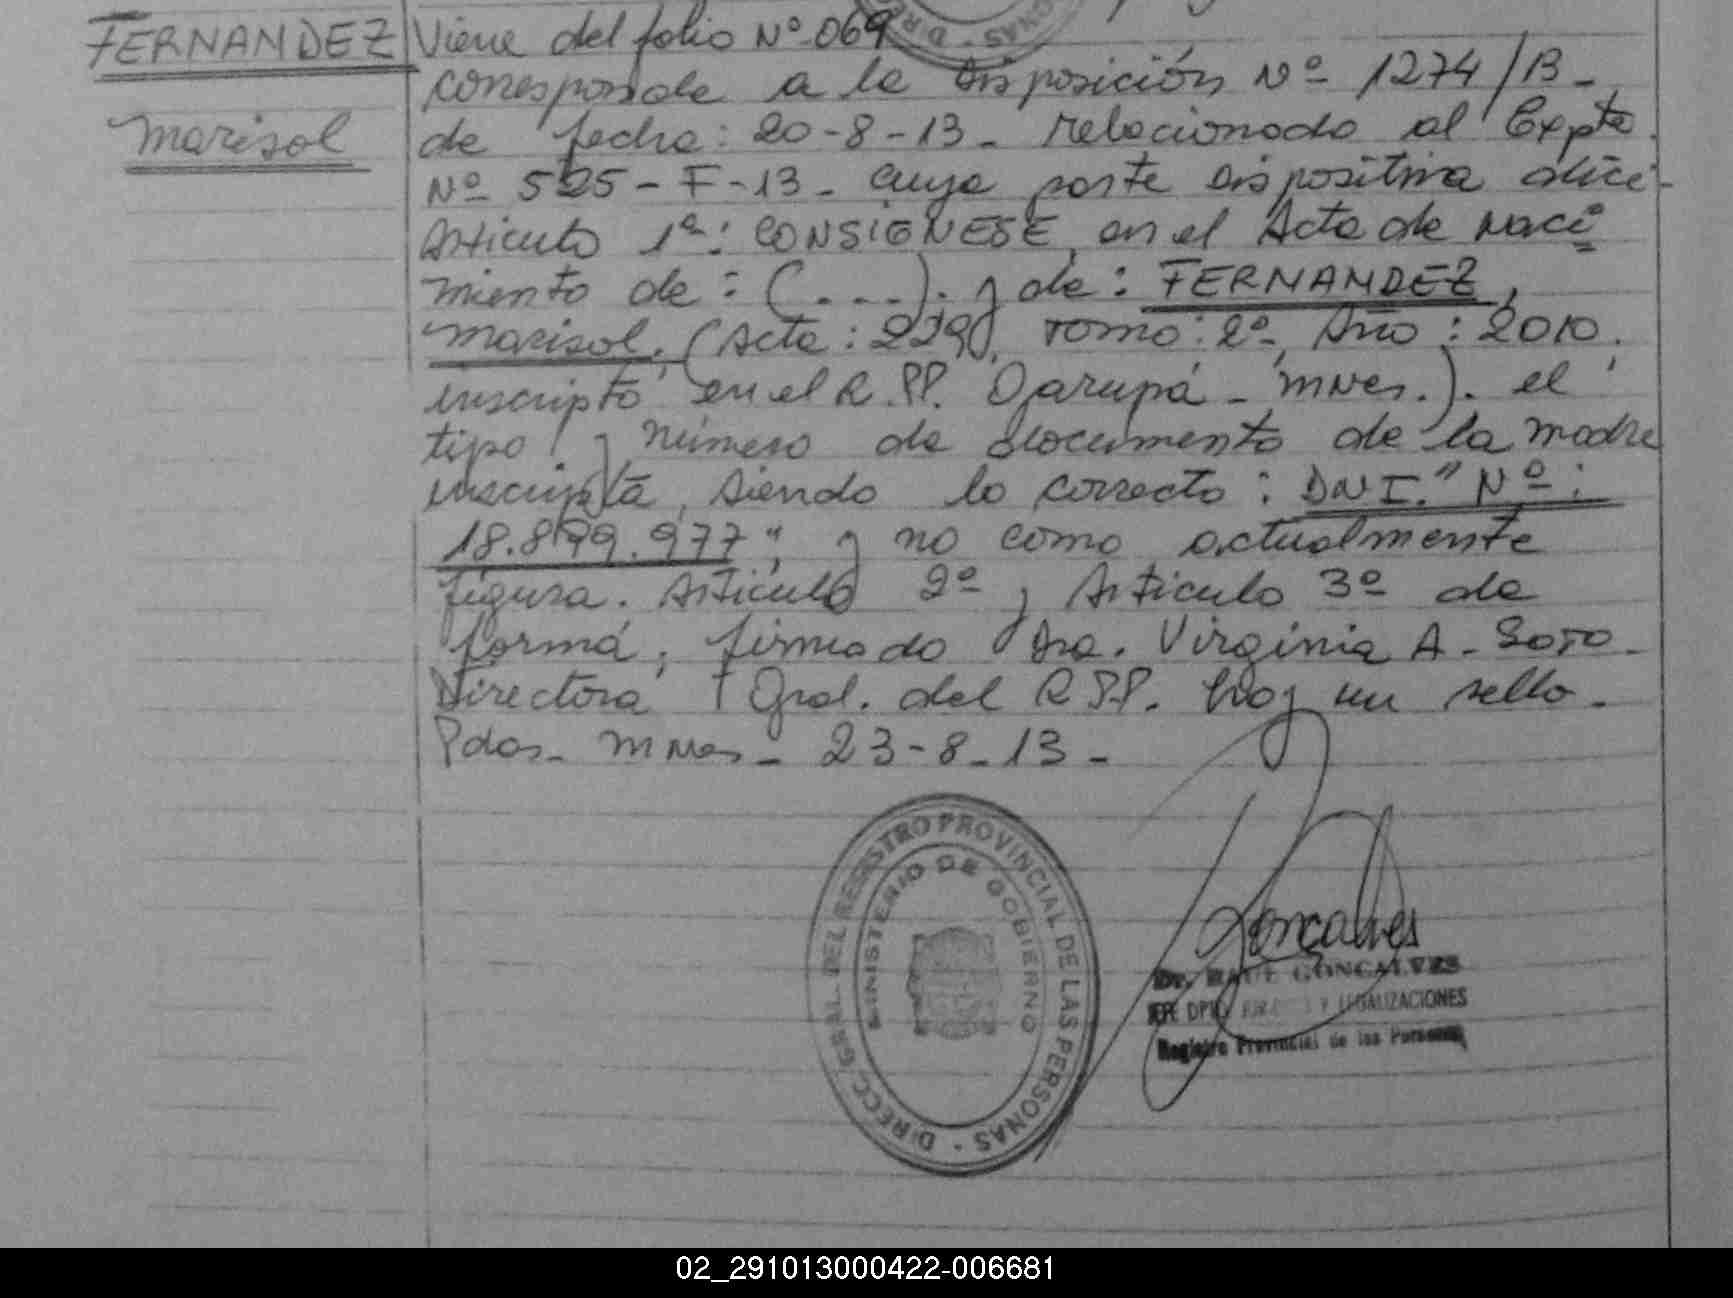 FERNANDEZ
Marisol
Viene del folio Nº 069
corresponde a la Disposición Nº 1274/13-
de fecha: 20-8-13- relacionado al Expte.
Nº 525-F-13- cuya parte dispositiva dice:-
Articulo 1º: CONSIGNESE, en el Acta de Naci
miento de: (...). y de: FERNANDEZ,
Marisol, (Acta: 2290, Tomo: 2º, Año: 2010.
inscripto en el R.PP. Garupá - Mnes.). el
tipo y número de documento de la madre
inscripta, siendo lo correcto: DNI." Nº:
18.899.977", y no como actualmente
figura. Articulo 2º y Articulo 3º de
forma, firmado Dra. Virginia A. Soto-
Directora Gral. del R.PP. hay un sello.
Pdas- Mnes- 23-8-13-
DIRECC. GRAL. DEL REGISTRO PROVINCIAL DE LAS PERSONAS -
MINISTERIO DE GOBIERNO
Goncalves
Dr. RAUL GONCALVES
JEFE DPTO. Y LEGALIZACIONES
Registro Provincial de las Personas
02_291013000422-006681